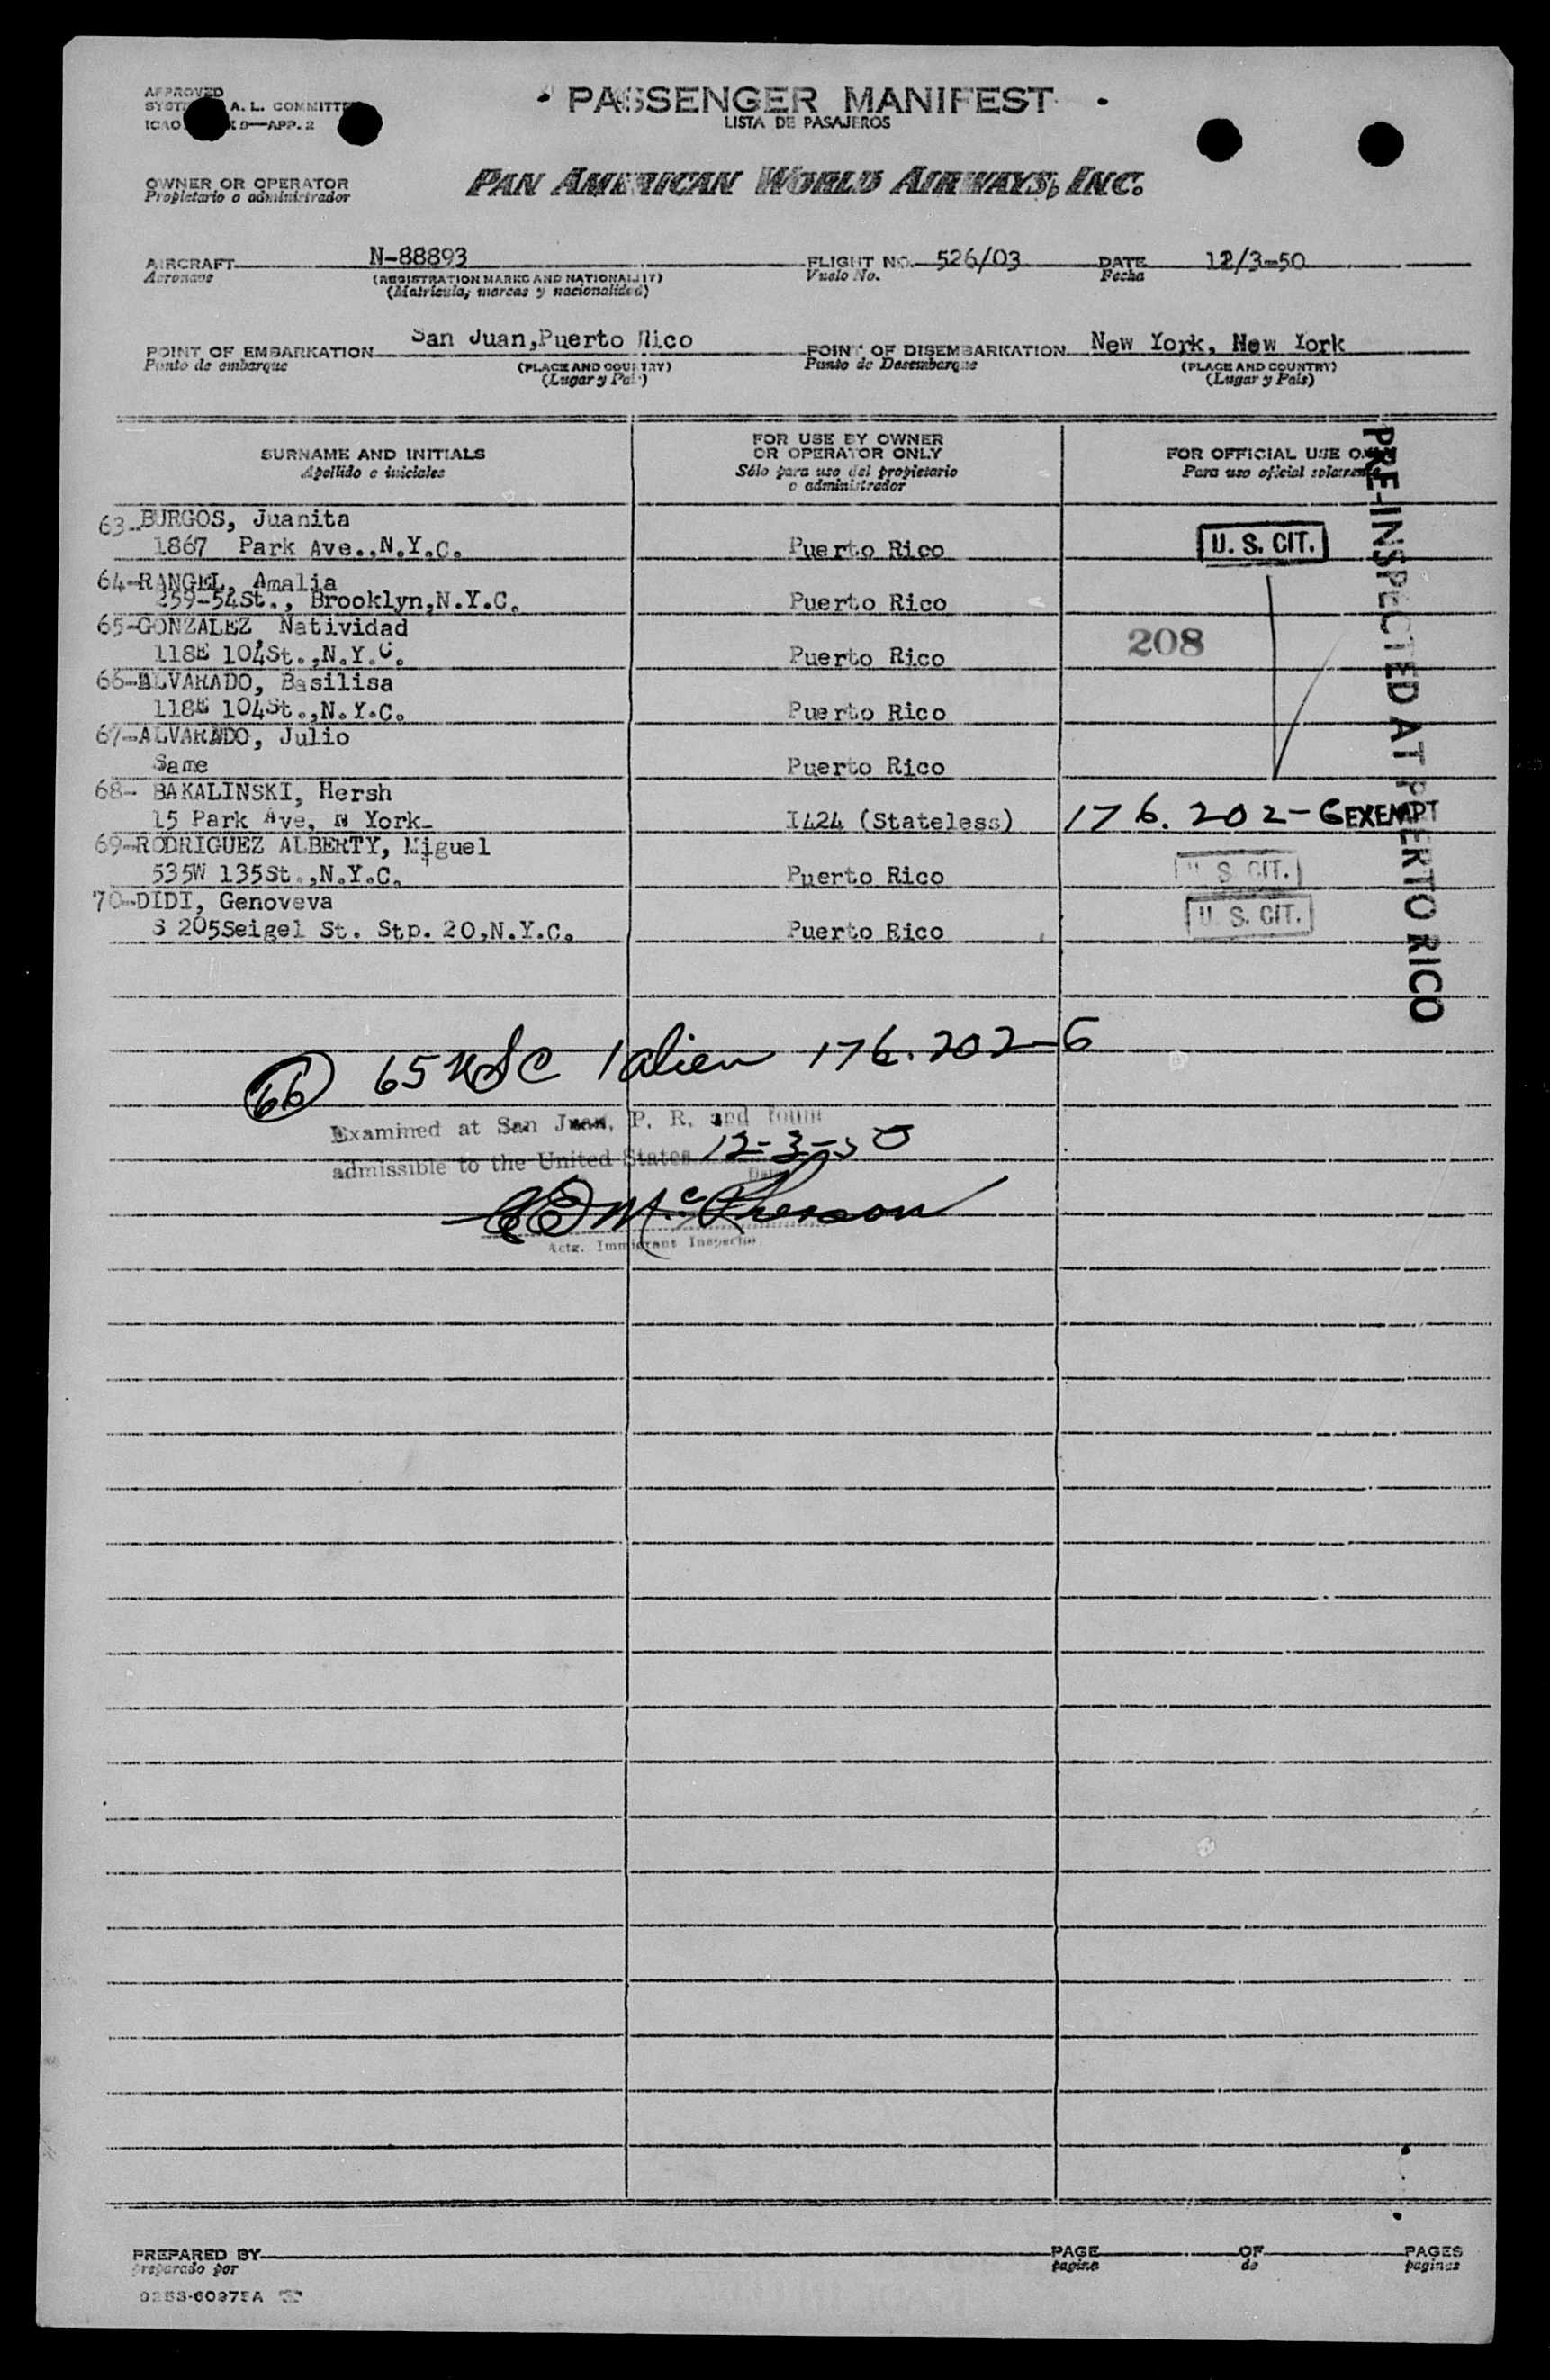 APPROVED
A. L. COMMITTEE
ICAO 9—APP. 2
PASSENGER MANIFEST
LISTA DE PASAJEROS
OWNER OR OPERATOR
Propietario o administrador
PAN AMERICAN WORLD AIRWAYS, INC.
AIRCRAFT N-88893 FLIGHT NO. 526/03 DATE 12/3-50
Aeronave (REGISTRATION MARKS AND NATIONALITY) Vuelo No. Fecha
(Matricula, marcas y nacionalidad)
POINT OF EMBARKATION San Juan,Puerto Rico POINT OF DISEMBARKATION New York, New York
Punto de embarque (PLACE AND COUNTRY) Punto de Desembarque (PLACE AND COUNTRY)
(Lugar y Pais) (Lugar y Pais)
SURNAME AND INITIALS
Apellido e iniciales
FOR USE BY OWNER
OR OPERATOR ONLY
Sólo para uso del propietario
o administrador
FOR OFFICIAL USE
Para uso oficial solamente
PRE-INSPECTED AT PUERTO RICO
63-BURGOS, Juanita
1867 Park Ave.,N.Y.C. Puerto Rico U. S. CIT.
64-RANGEL, Amalia
259-54St., Brooklyn,N.Y.C. Puerto Rico
65-GONZALEZ, Natividad
118E 104St.,N.Y.C. Puerto Rico 208
66-ALVARADO, Basilisa
118E 104St.,N.Y.C. Puerto Rico
67-ALVARADO, Julio
Same Puerto Rico
68- BAKALINSKI, Hersh
15 Park Ave, N York- I424 (Stateless) 176.202-6 EXEMPT
69-RODRIGUEZ ALBERTY, Miguel
535W 135St.,N.Y.C. Puerto Rico U. S. CIT.
70-DIDI, Genoveva
S 205Seigel St. Stp. 20,N.Y.C. Puerto Rico U. S. CIT.
66 65 USC 1 alien 176.202-6
Examined at San Juan, P. R. and found
admissible to the United States 12-3-50
Date
McPherson
Actg. Immigrant Inspector
PREPARED BY PAGE OF PAGES
preparado por pagina de paginas